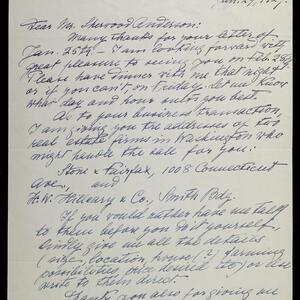 Jan. 29, 1927.
Dear Mr. Sherwood Anderson:
Many thanks for your letter of
Jan. 25th. – I am looking forward with
great pleasure to seeing you on Feb.
Please have dinner with me that night
or if you can't, on Friday. Let me know
what day and hour suits you best
As to your business transaction,
I am giving you the addresses of two
real estate firms in Washington who
might handle the sale for you:
Stone & Fairfax, 1008 Connecticut
Ave., and
H.W. Hilleary & Co., Smith Bdg.
If you would rather have me talk
to them before you do it yourself,
kindly give me all the details
(size, location, house, (?) farming
possibilities, price desired etc) or
write to them direct.
Thank you also for giving me